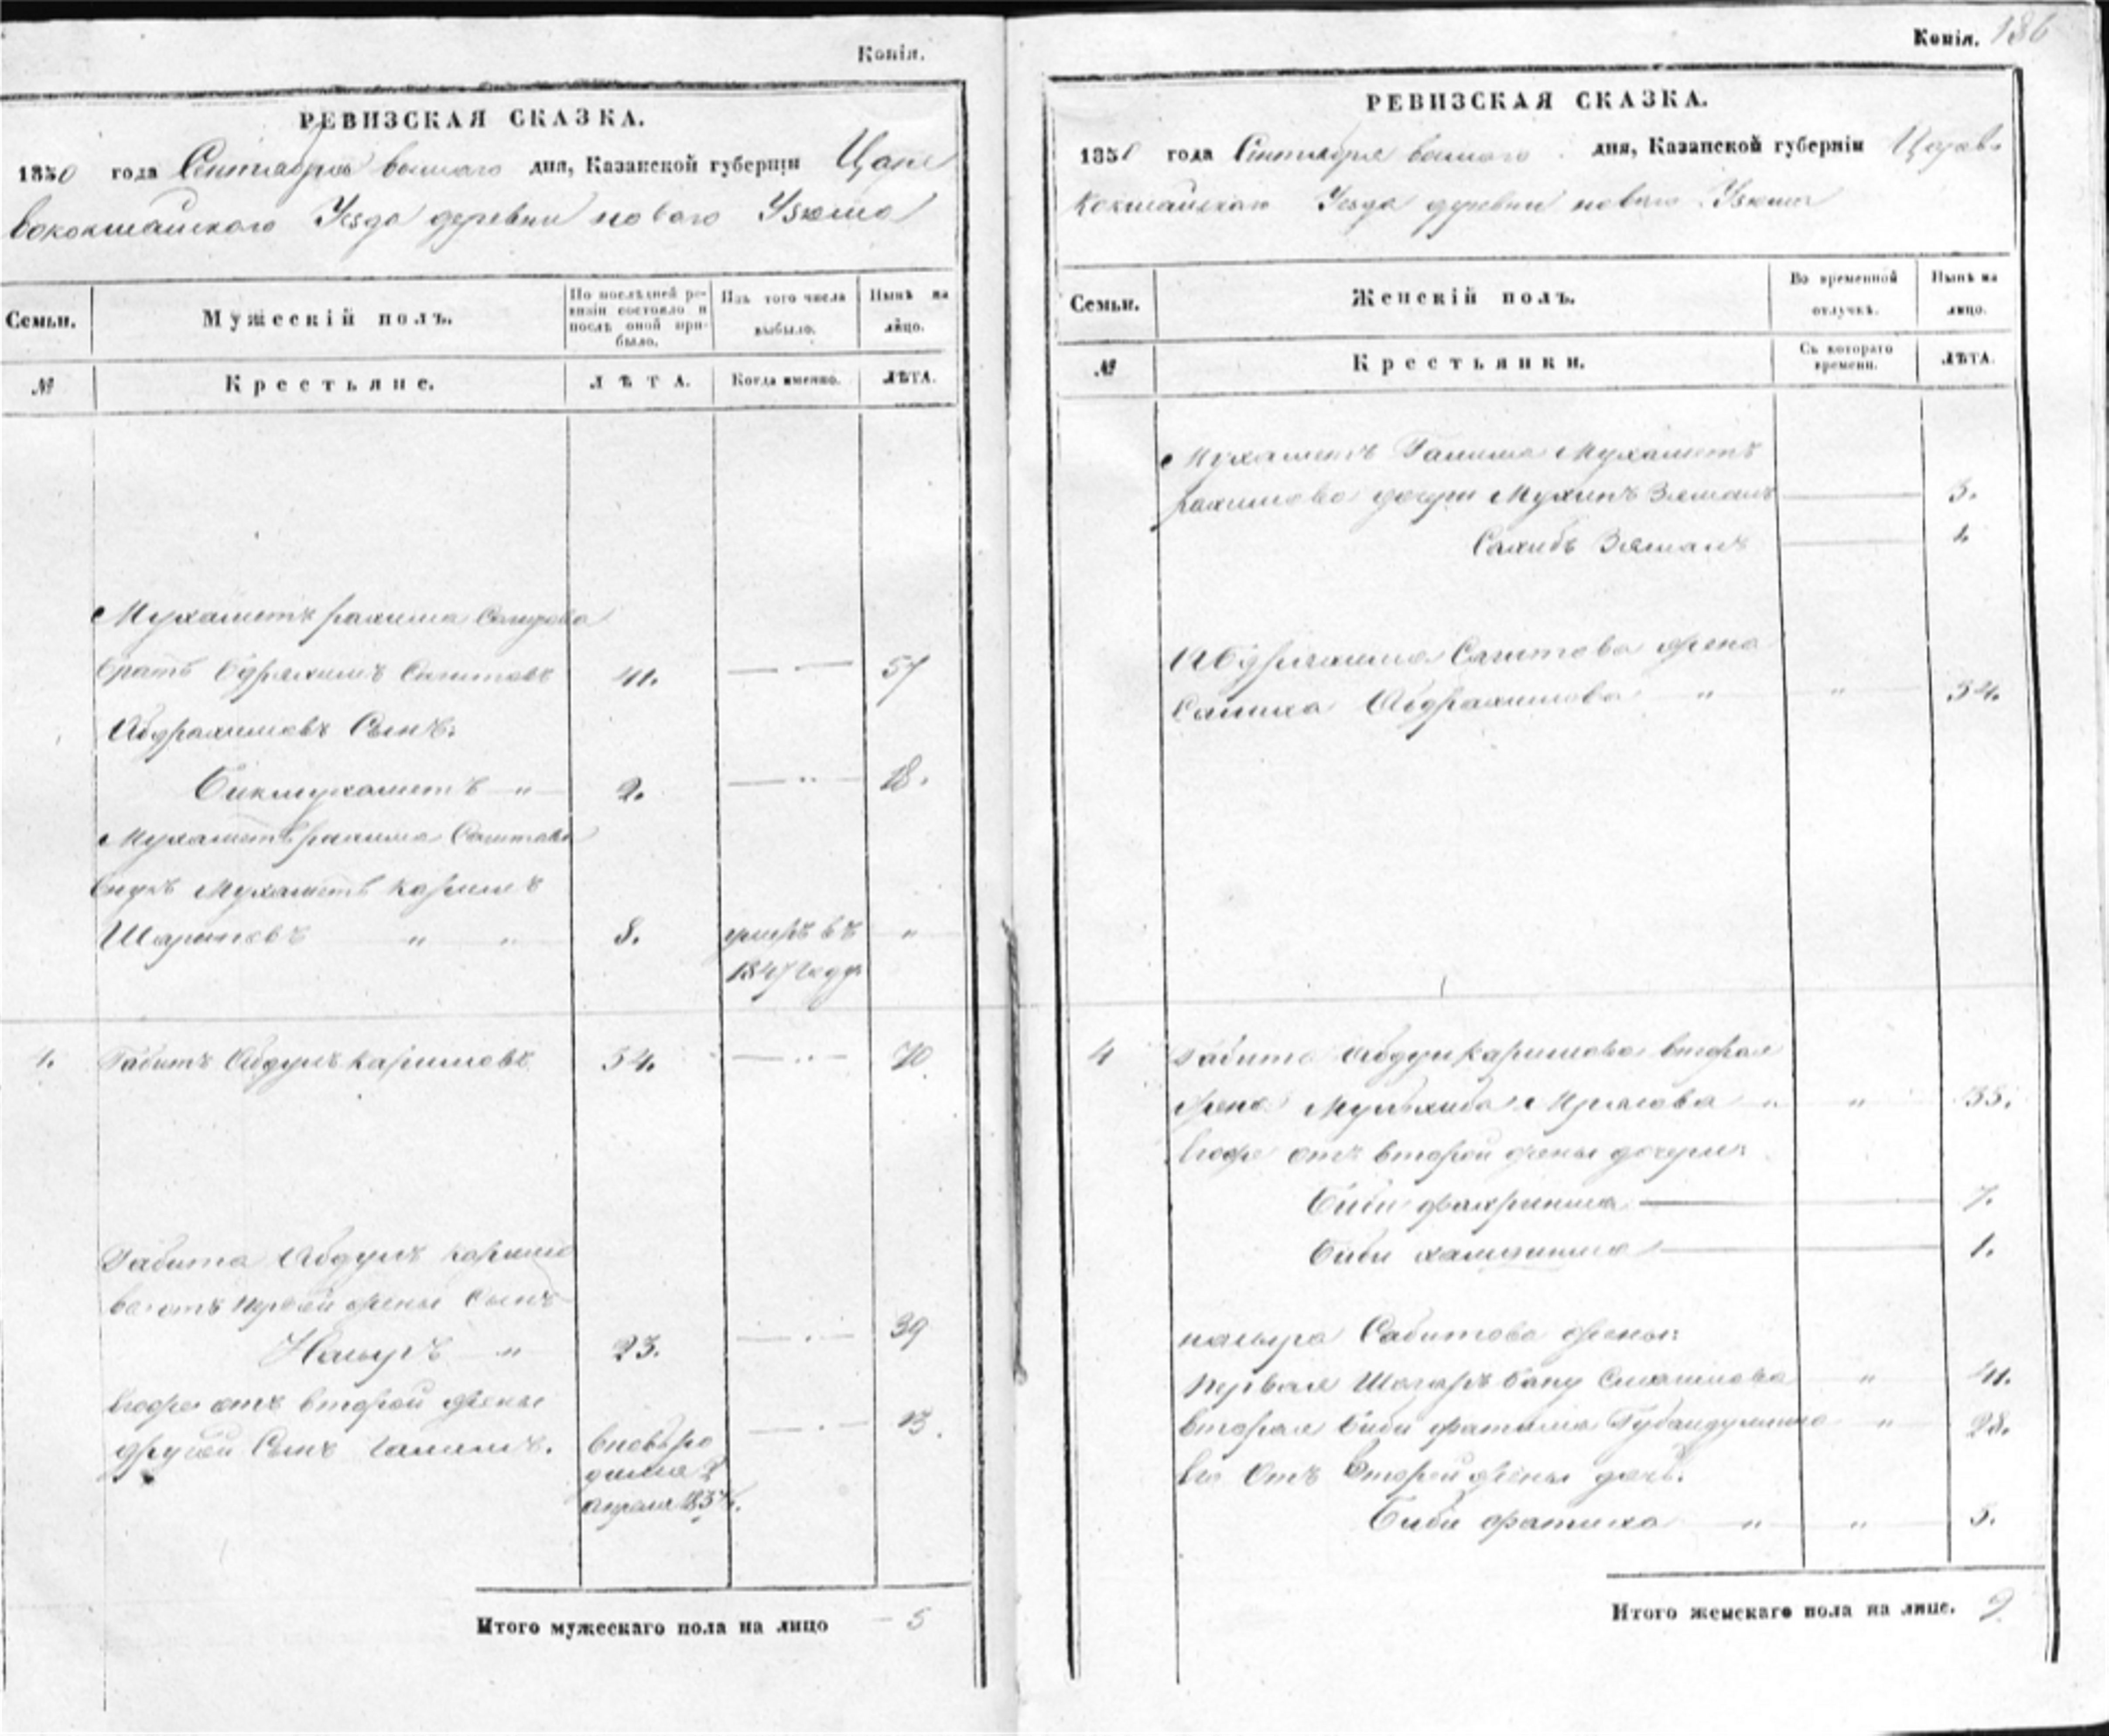 Копія.
РЕВИЗСКАЯ СКАЗКА.
1850 года Сентября дня, Казанской губерніи Царе
вококшайскаго Уезда деревни новаго Узюма
Семьи.
Мужескій полъ.
По послѣдней ре-
визіи состояло и
послѣ оной при-
было.
Изъ того числа
выбыло.
Нынѣ на
лицо.
№
Крестьяне.
ЛѢТА.
Когда именно.
ЛѢТА.
Мухаметъ рахима
братъ Сагитовъ 41. 57
Абдрахимовъ Сынъ:
Бикмухаметъ „ 2. 18.
Мухаметъ рахима Сагитова
внукъ Мухаметъ каримъ
Шариповъ „ „ 8. умеръ въ „
1847 году
4. Габитъ Абдулъ каримовъ 54. 70
Габита Абдулъ каримо
ва отъ первой жены Сынъ
„ 23. 39
Егоже отъ второй жены
другой Сынъ Галимъ. вновь ро 13.
апреля
Итого мужескаго пола на лицо 5
Копія. 136
РЕВИЗСКАЯ СКАЗКА.
1850 года Сентября дня, Казанской губерніи Царево
кокшайскаго Уезда деревни новаго Узюма
Семьи.
Женскій полъ.
Во временной
отлучкѣ.
Нынѣ на
лицо.
№
Крестьянки.
Съ котораго
времени.
ЛѢТА.
Мухаметъ Галима Мухаметъ
рахимова дочери Зямалъ 3.
Сахибъ Зямалъ 1.
Абдрахима Сагитова жена
Салиха Абдрахимова „ „ 54.
4 Габита Абдулкаримова вторая
жена „ „ 55.
Егоже отъ второй жены дочери:
Биби фахриниса 7.
Биби 1.
Сабитова жены:
первая Шагаръ бану Смаилова „ 41.
вторая Биби фатыма Губайдуллина „ 28.
Его отъ второй жены дочь.
Биби фатиха „ „ 5.
Итого женскаго пола на лице. 9